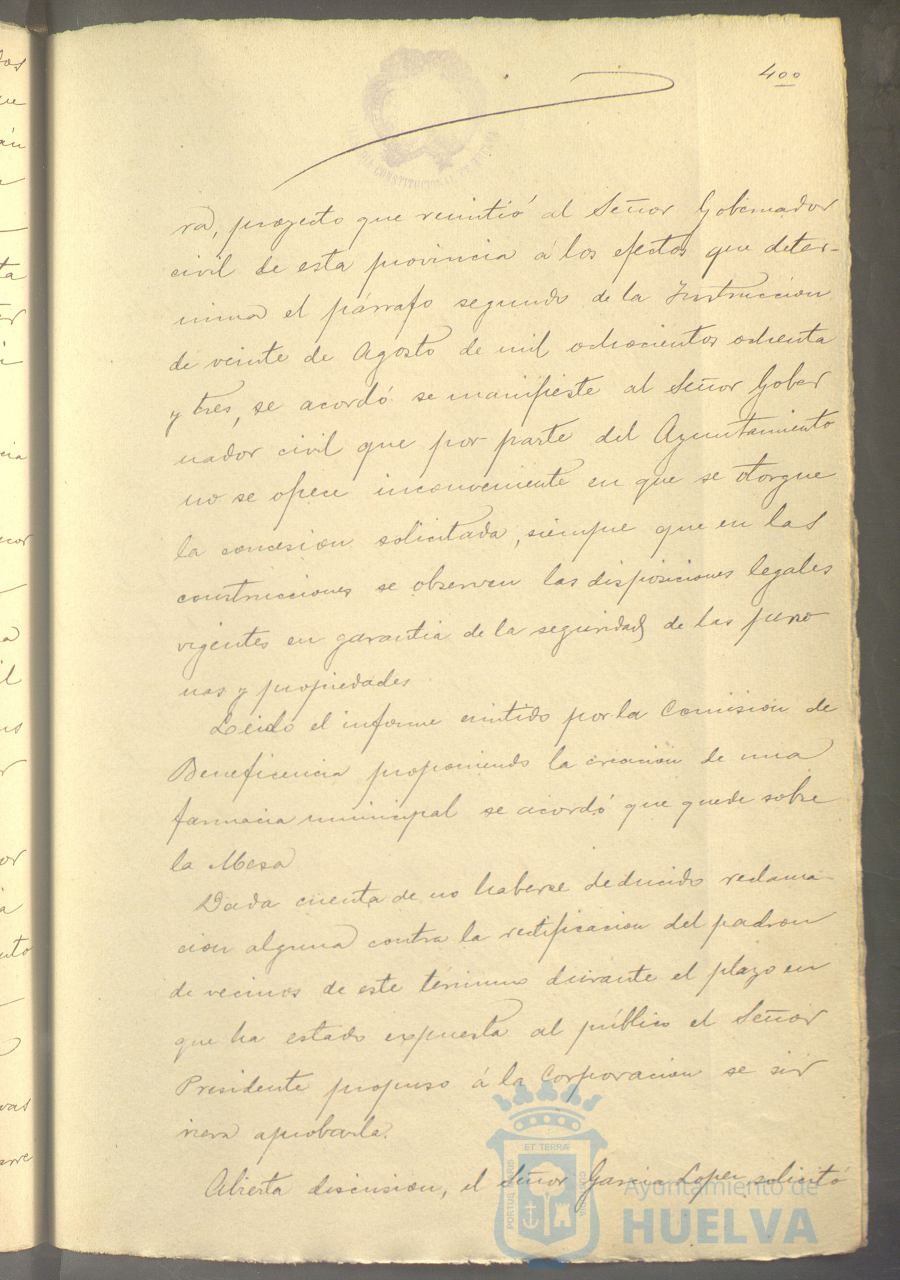 400
ra, proyecto que remitió al Señor Gobernador
civil de esta provincia á los efectos que deter-
mina el párrafo segundo de la Instruccion
de veinte de Agosto de mil ochocientos ochenta
y tres, se acordó se manifieste al Señor Gober
nador civil que por parte del Ayuntamiento
no se ofrece inconveniente en que se otorgue
la concesion solicitada, siempre que en las
construcciones se observen las disposiciones legales
vigentes en garantia de la seguridad de las perso
nas y propiedades
Leido el informe emitido por la Comision de
Beneficencia proponiendo la creacion de una
farmacia municipal se acordó que quede sobre
la Mesa
Dada cuenta de no haberse deducido reclama-
cion alguna contra la rectificacion del padron
de vecinos de este término durante el plazo en
que ha estado expuesta al público el Señor
Presidente propuso á la Corporacion se sir
viera aprobarla.
Abierta discusion, el Señor Garcia Lopez solicitó
ET TERRÆ
PORTUS MARIS
CUSTODIA
Ayuntamiento de
HUELVA